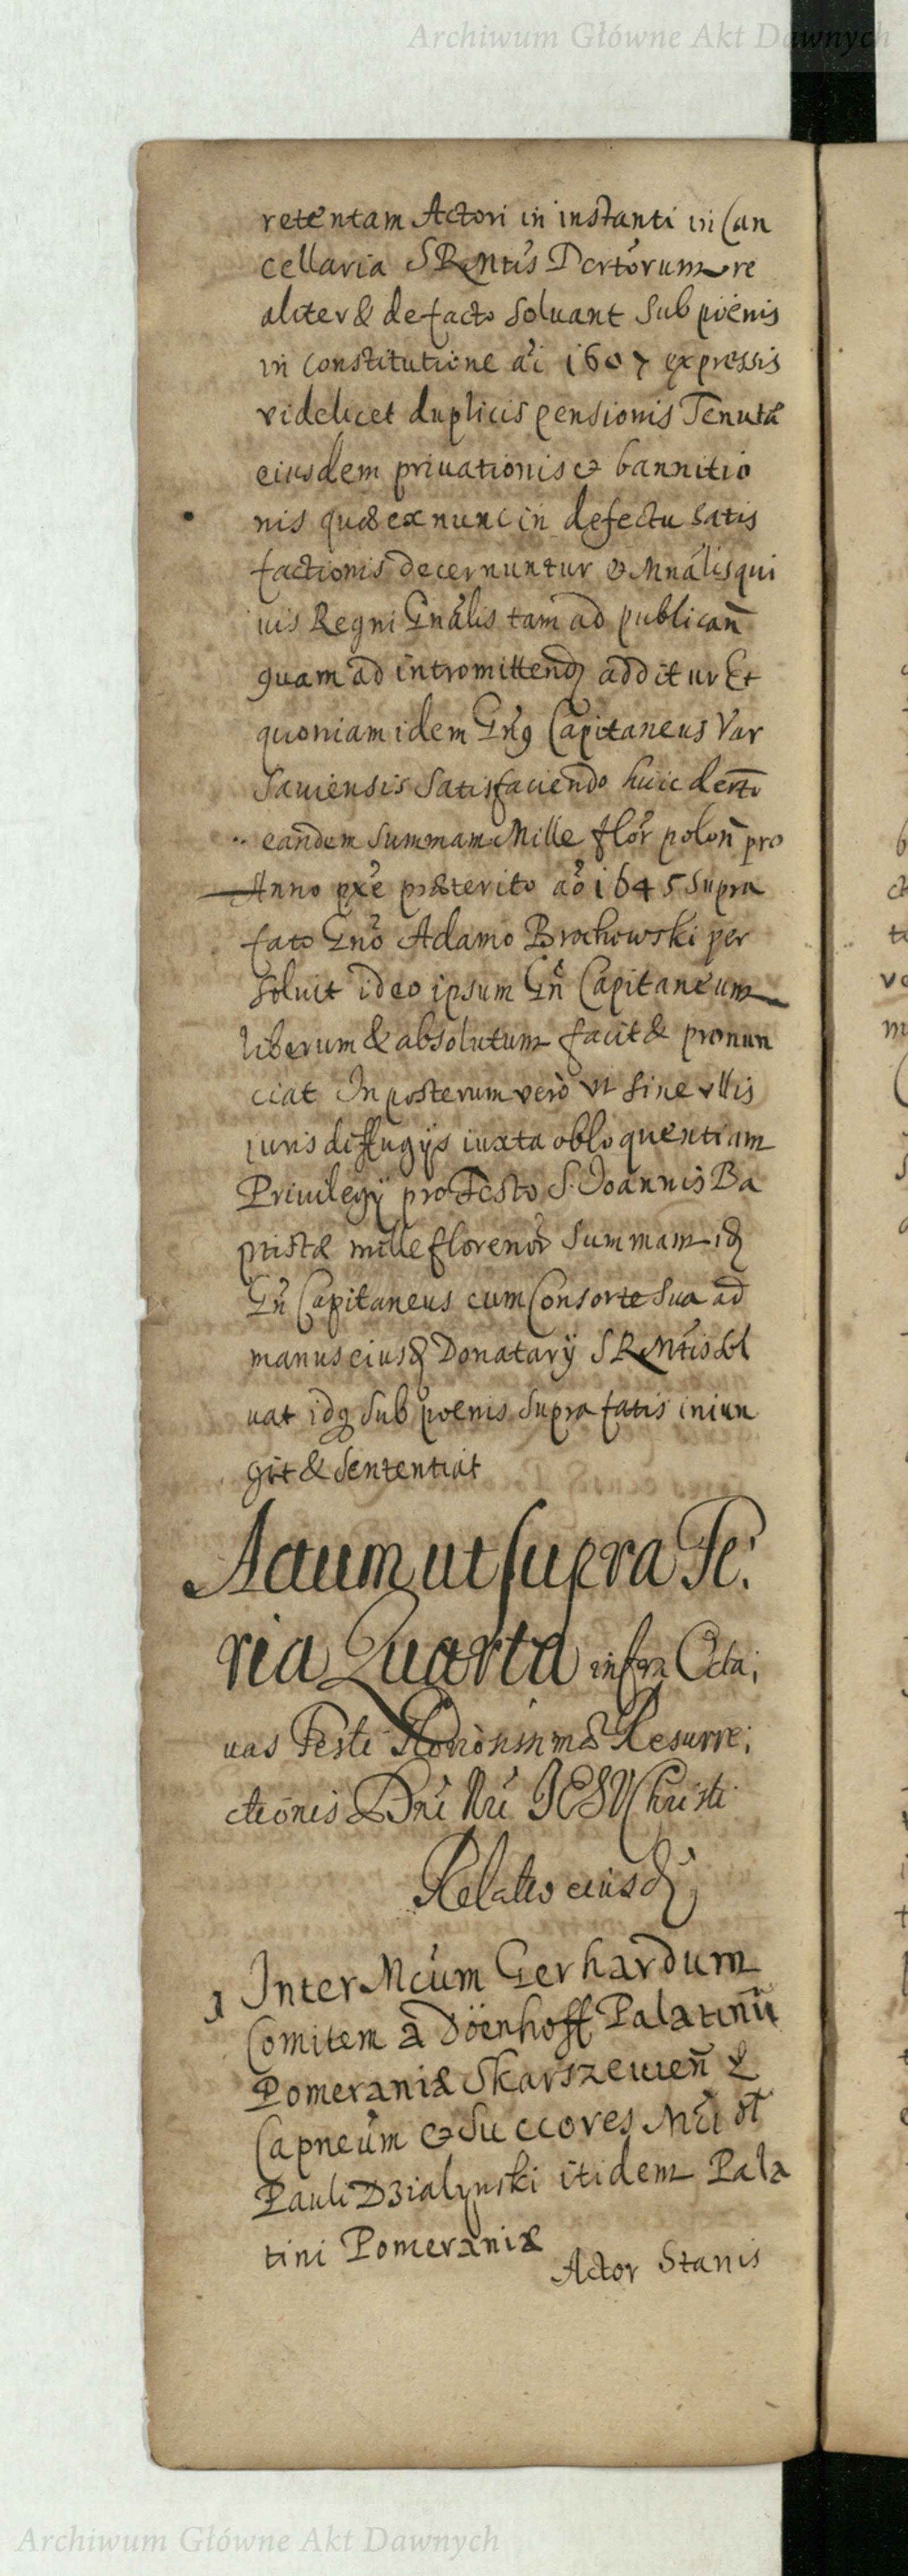 Archiwum Główne Akt Dawnych
retentam Actori in instanti in Can
cellaria SRMtis Dertorum re
aliter & de facto soluant sub poenis
in constitutione ai 1607 expressis
videlicet duplicis pensionis Tenutæ
eiusdem priuationis & bannitio
nis quæ ex nunc in defectu satis
factionis decernuntur & Mnalis qui
uis Regni Gnalis tam ad publican
quam ad intromittend additur Et
quoniam idem Gns Capitaneus Var
sauiensis satisfaciendo huic derto
eandem summam Mille flor polon pro
Anno pxe præterito ao 1645 supra
fato Gno Adamo Brochowski per
soluit ideo ipsum Gn Capitaneum
liberum & absolutum facit & pronun
ciat In posterum vero vt sine vllis
iuris diffugijs iuxta obloquentiam
Priuilegij pro Festo S. Joannis Ba
ptistæ mille florenor summam id
Gn Capitaneus cum Consorte sua ad
manus eiusd Donatarij SRMtis sol
uat idq sub poenis supra fatis iniun
git & sententiat
Actum ut supra Fe:
ria Quarta infra Octa:
uas Festi Resurre:
ctionis Dni Nri IESV Christi
Relatio eiusd
1 Inter Mcum Gerhardum
Comitem a Döenhoff Palatinu
Pomeraniæ Skarszewien &
Capneum & Succores Mci ol
Pauli Dzialynski itidem Pala
tini Pomeraniæ
Actor Stanis
Archiwum Główne Akt Dawnych